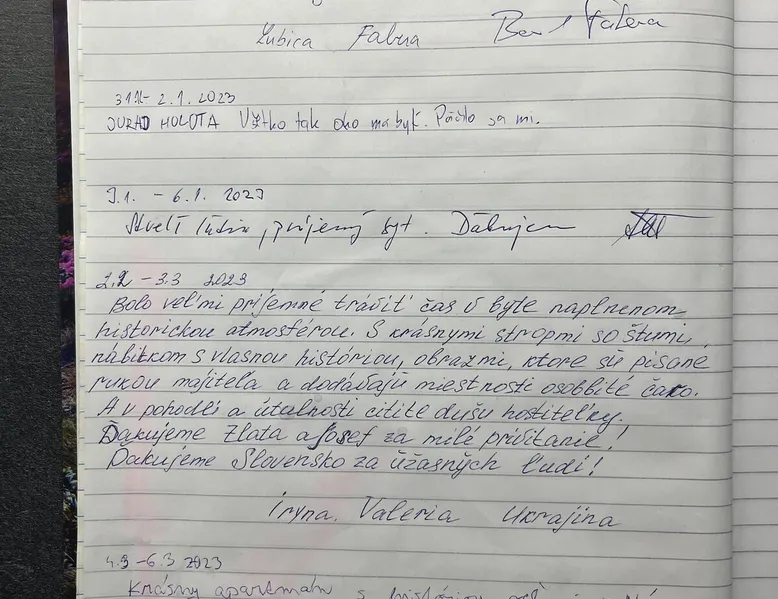 Ľubica Fabera
31.12- 2.1.2023
JURAD HOLOTA Všetko tak ako ma byť. Páčilo sa mi.
3.1. - 6.1. 2023
ľudia, príjemný byt. Ďakujem
2.2 - 3.3 2023
Bolo veľmi príjemné tráviť čas v byte naplnenom
historickou atmosférou. S krásnymi stropmi so štumi,
nábitkom s vlasnou históriou, obrazmi, ktore sú písané
rukou majiteľa a dodáďajú miestnosti osobbité čaro.
A v pohodlí a útulnosti cítite dušu hostiteľky.
Ďakujeme Zlata a Josef za milé privítanie!
Ďakujeme Slovensko za úžasných ľudí!
Iryna. Valeria Ukrajina
4.3 - 6.3 2023
Krásny apartmán s históriou